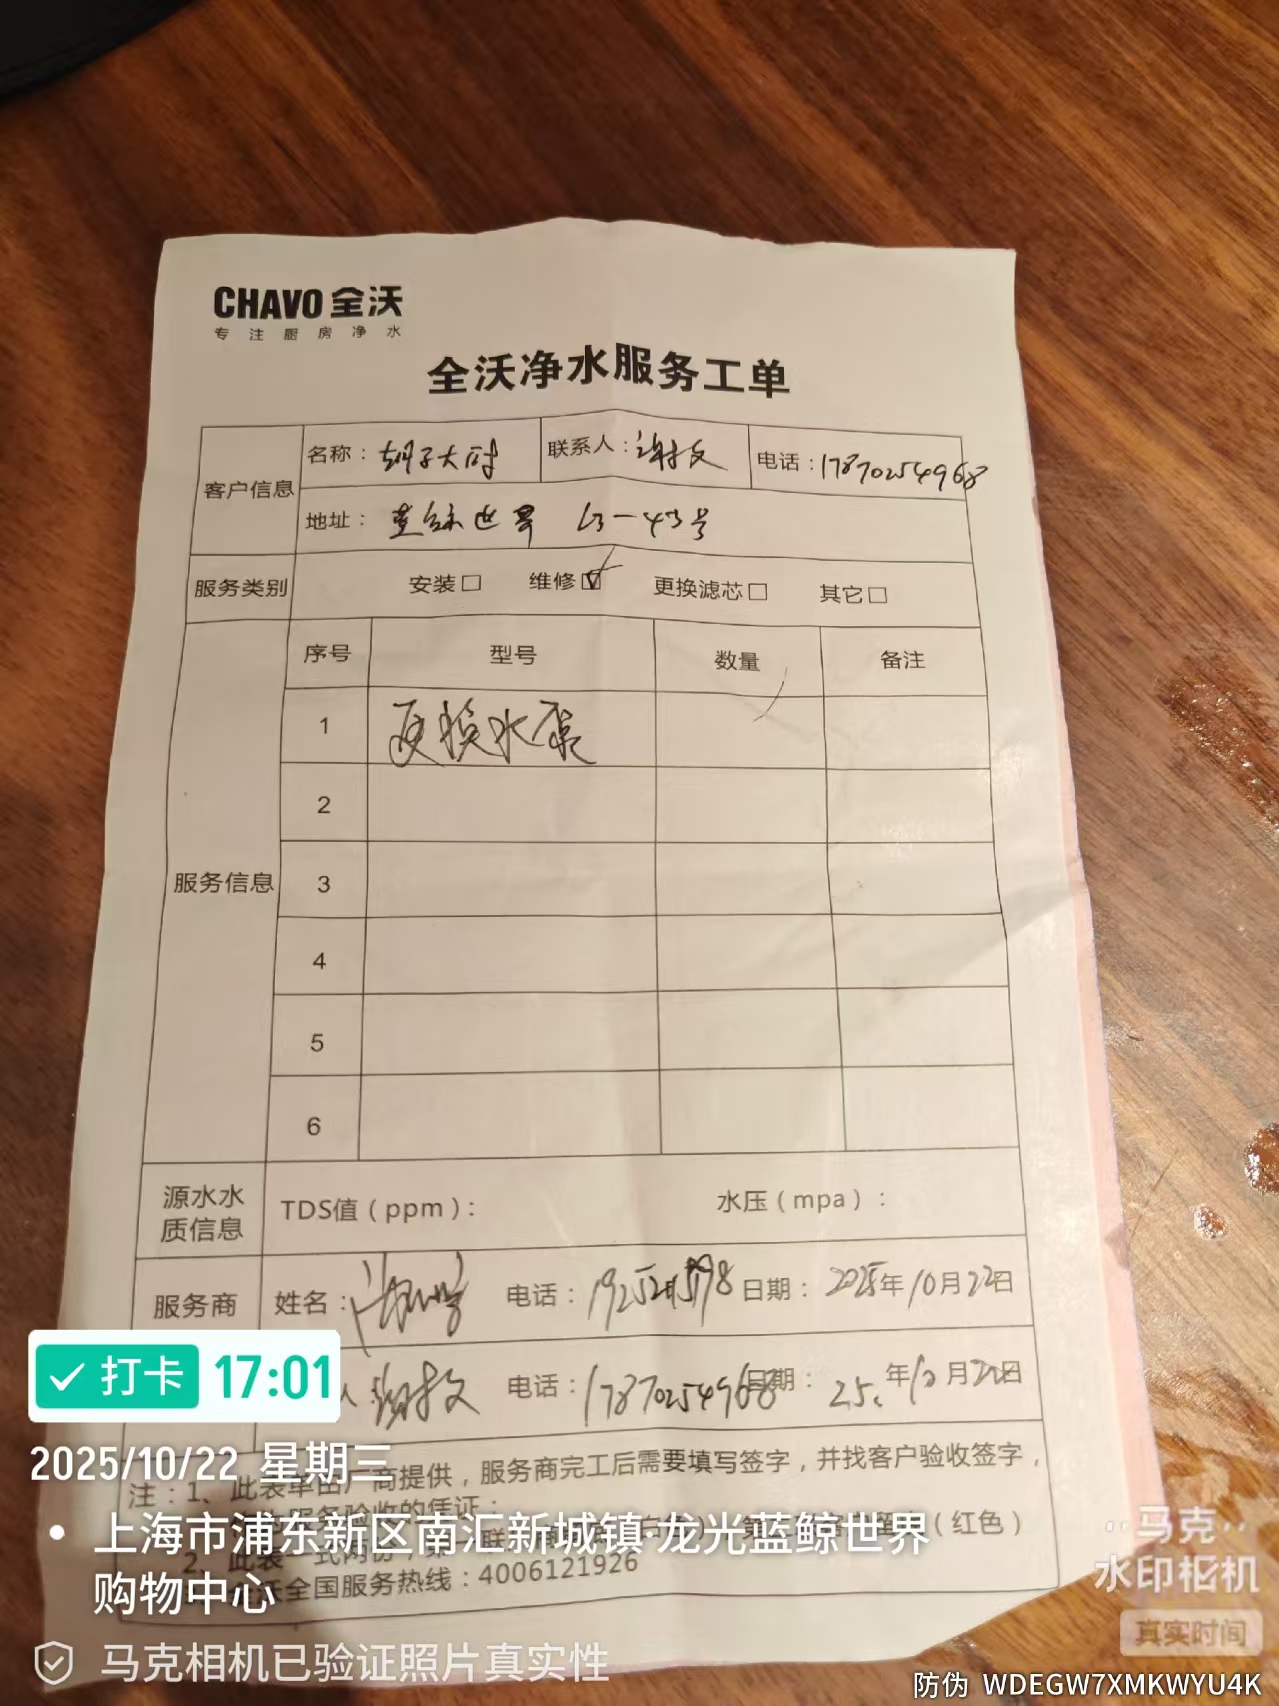 CHAVO 全沃
专注厨房净水
全沃净水服务工单
客户信息
名称： 胡子大厨
联系人：谢文
电话：17870254968
地址： 世界 L3-43号
服务类别
安装□ 维修☑ 更换滤芯□ 其它□
服务信息
序号 型号 数量 备注
1 更换水泵
2
3
4
5
6
源水水质信息
TDS值（ppm）： 水压（mpa）：
服务商 姓名： 电话： 日期： 2025年10月22日
电话：17870254968 日期： 25.年10月22日
注：1、此表单由厂商提供，服务商完工后需要填写签字，并找客户验收签字，
服务验收的凭证；
2、此表一式两份，（红色）
沃全国服务热线：4006121926
打卡 17:01
2025/10/22 星期三
上海市浦东新区南汇新城镇·龙光蓝鲸世界
购物中心
马克相机已验证照片真实性
马克
水印相机
真实时间
防伪 WDEGW7XMKWYU4K